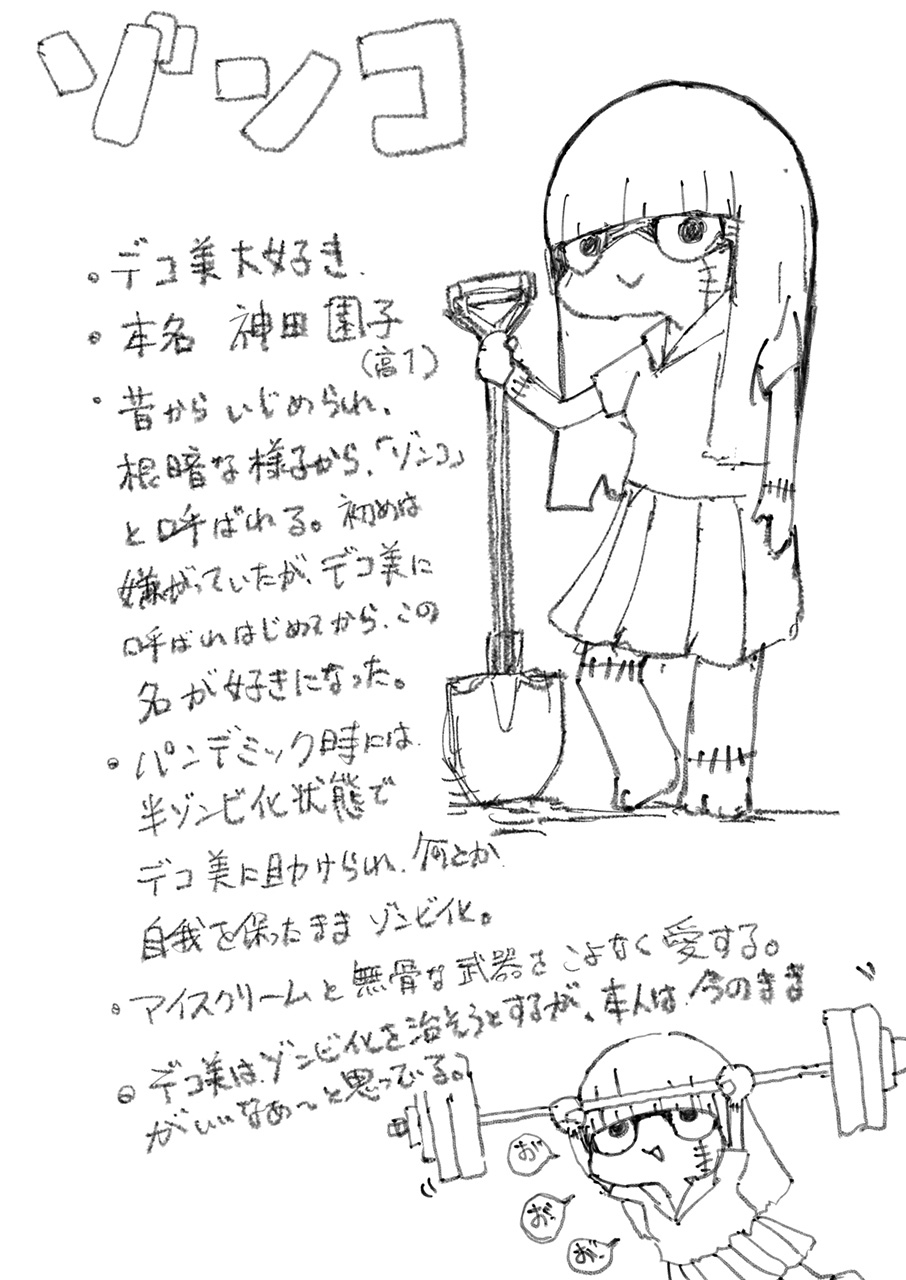 ゾンコ
・デコ美大好き.
・本名 神田園子
(高1)
・昔からいじめられ、
根暗な様子から、「ゾンコ」
と呼ばれる。初めは
嫌がっていたが、デコ美に
呼ばれはじめてから、この
名が好きになった。
・パンデミック時には
半ゾンビ化状態で
デコ美に助けられ、何とか
自我を保ったままゾンビ化。
・アイスクリームと無骨な武器をこよなく愛する。
・デコ美はゾンビ化を治そうとするが、本人は今のまま
がいいなあ〜と思っている。
お゙
お゙
お゙